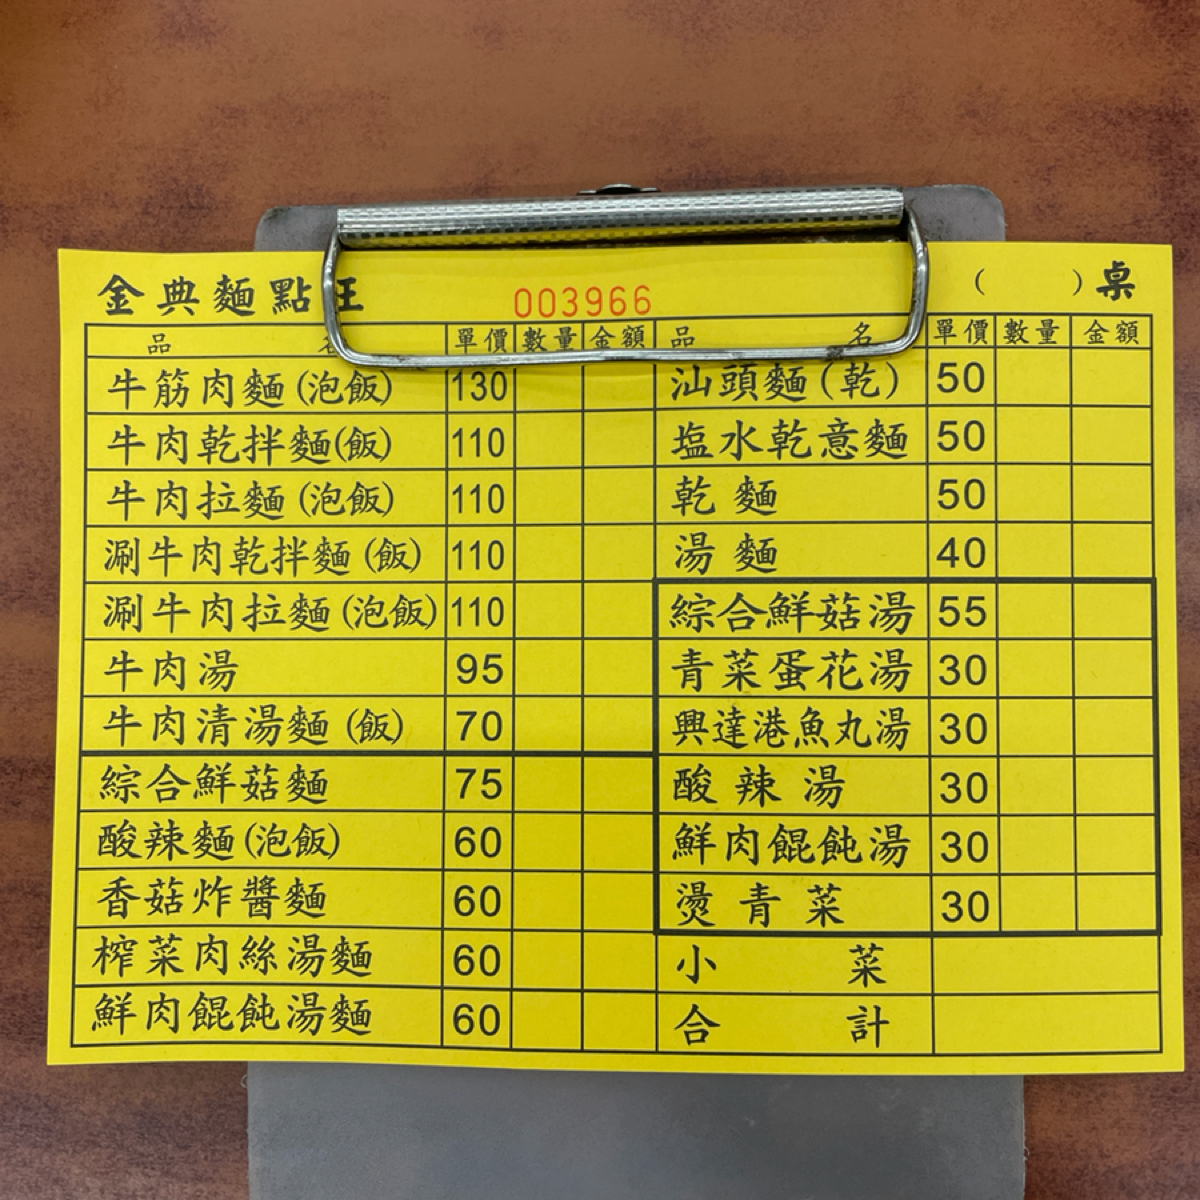 金典麵點王
003966
( )桌
品名 單價 數量 金額 品 名 單價 數量 金額
牛筋肉麵(泡飯) 130 汕頭麵(乾) 50
牛肉乾拌麵(飯) 110 塩水乾意麵 50
牛肉拉麵(泡飯) 110 乾麵 50
涮牛肉乾拌麵(飯) 110 湯麵 40
涮牛肉拉麵(泡飯) 110 綜合鮮菇湯 55
牛肉湯 95 青菜蛋花湯 30
牛肉清湯麵(飯) 70 興達港魚丸湯 30
綜合鮮菇麵 75 酸辣湯 30
酸辣麵(泡飯) 60 鮮肉餛飩湯 30
香菇炸醬麵 60 燙青菜 30
榨菜肉絲湯麵 60 小菜
鮮肉餛飩湯麵 60 合計